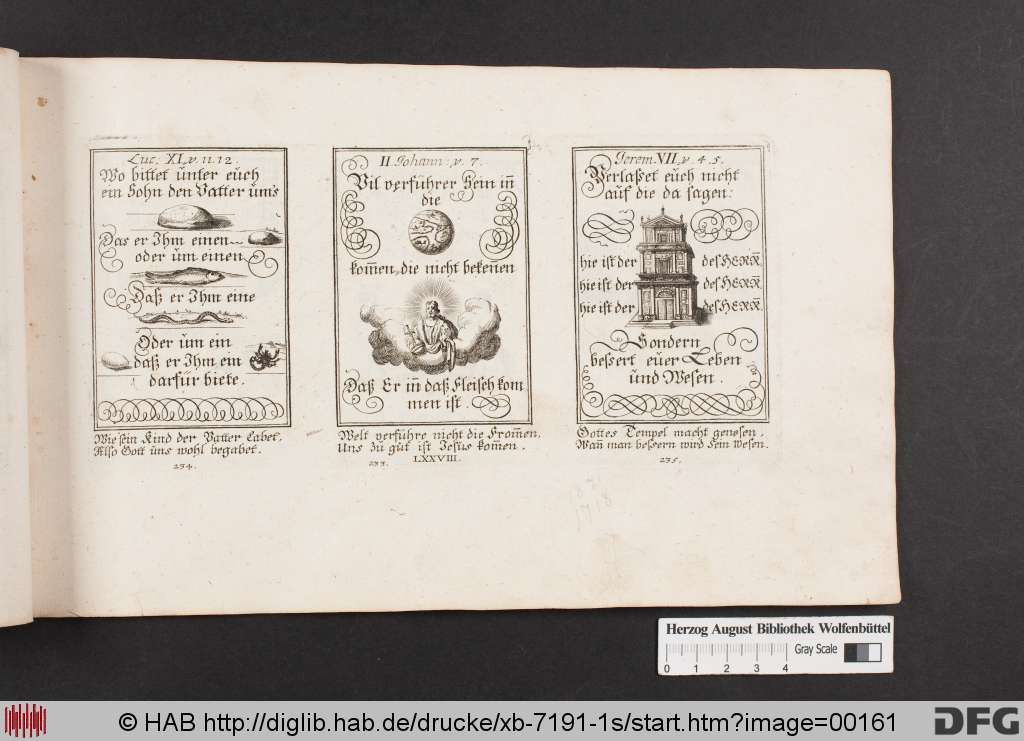 Luc. XI, v. 11. 12.
Wo bittet unter eüch
ein Sohn den Vatter ums
Das er Ihm einen
oder üm einen
Daß er Ihm eine
Oder üm ein
daß er Ihm ein
darfür biete.
Wie sein Kind der Vatter Labet,
Also Gott üns wohl begabet.
234.
II. Johann:, v. 7.
Vil verführer Sein in̄
die
kom̄en, die nicht bekenen
Daß Er in̄ daß Fleisch kom
men ist.
Welt verführe nicht die From̄en,
Uns zü güt ist Jesüs kom̄en.
233.
LXXVIII.
Jerem. VII, v. 4. 5.
Verlasset eüch nicht
auf die da sagen:
hie ist der des HERR̄.
hie ist der des HERR̄.
hie ist der des HERR̄.
Sondern
bessert eüer Leben
ünd Wesen.
Gottes Tempel macht genesen,
Wan̄ man bessern wird Sein wesen.
235.
Herzog August Bibliothek Wolfenbüttel
Gray Scale
0 1 2 3 4
© HAB http://diglib.hab.de/drucke/xb-7191-1s/start.htm?image=00161
DFG